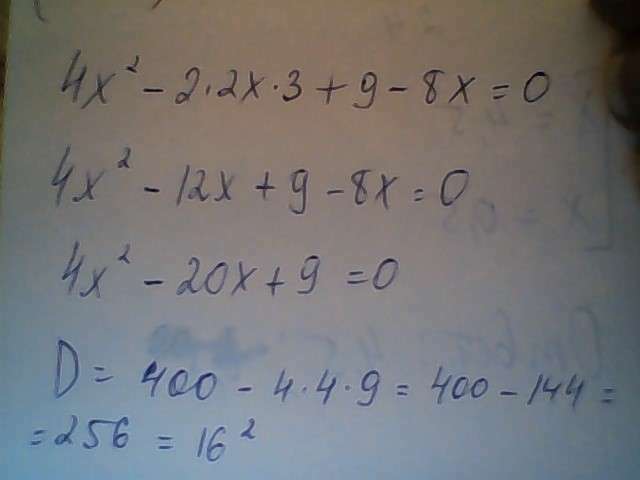 4x² - 2·2x·3 + 9 - 8x = 0
4x² - 12x + 9 - 8x = 0
4x² - 20x + 9 = 0
D = 400 - 4·4·9 = 400 - 144 =
= 256 = 16²